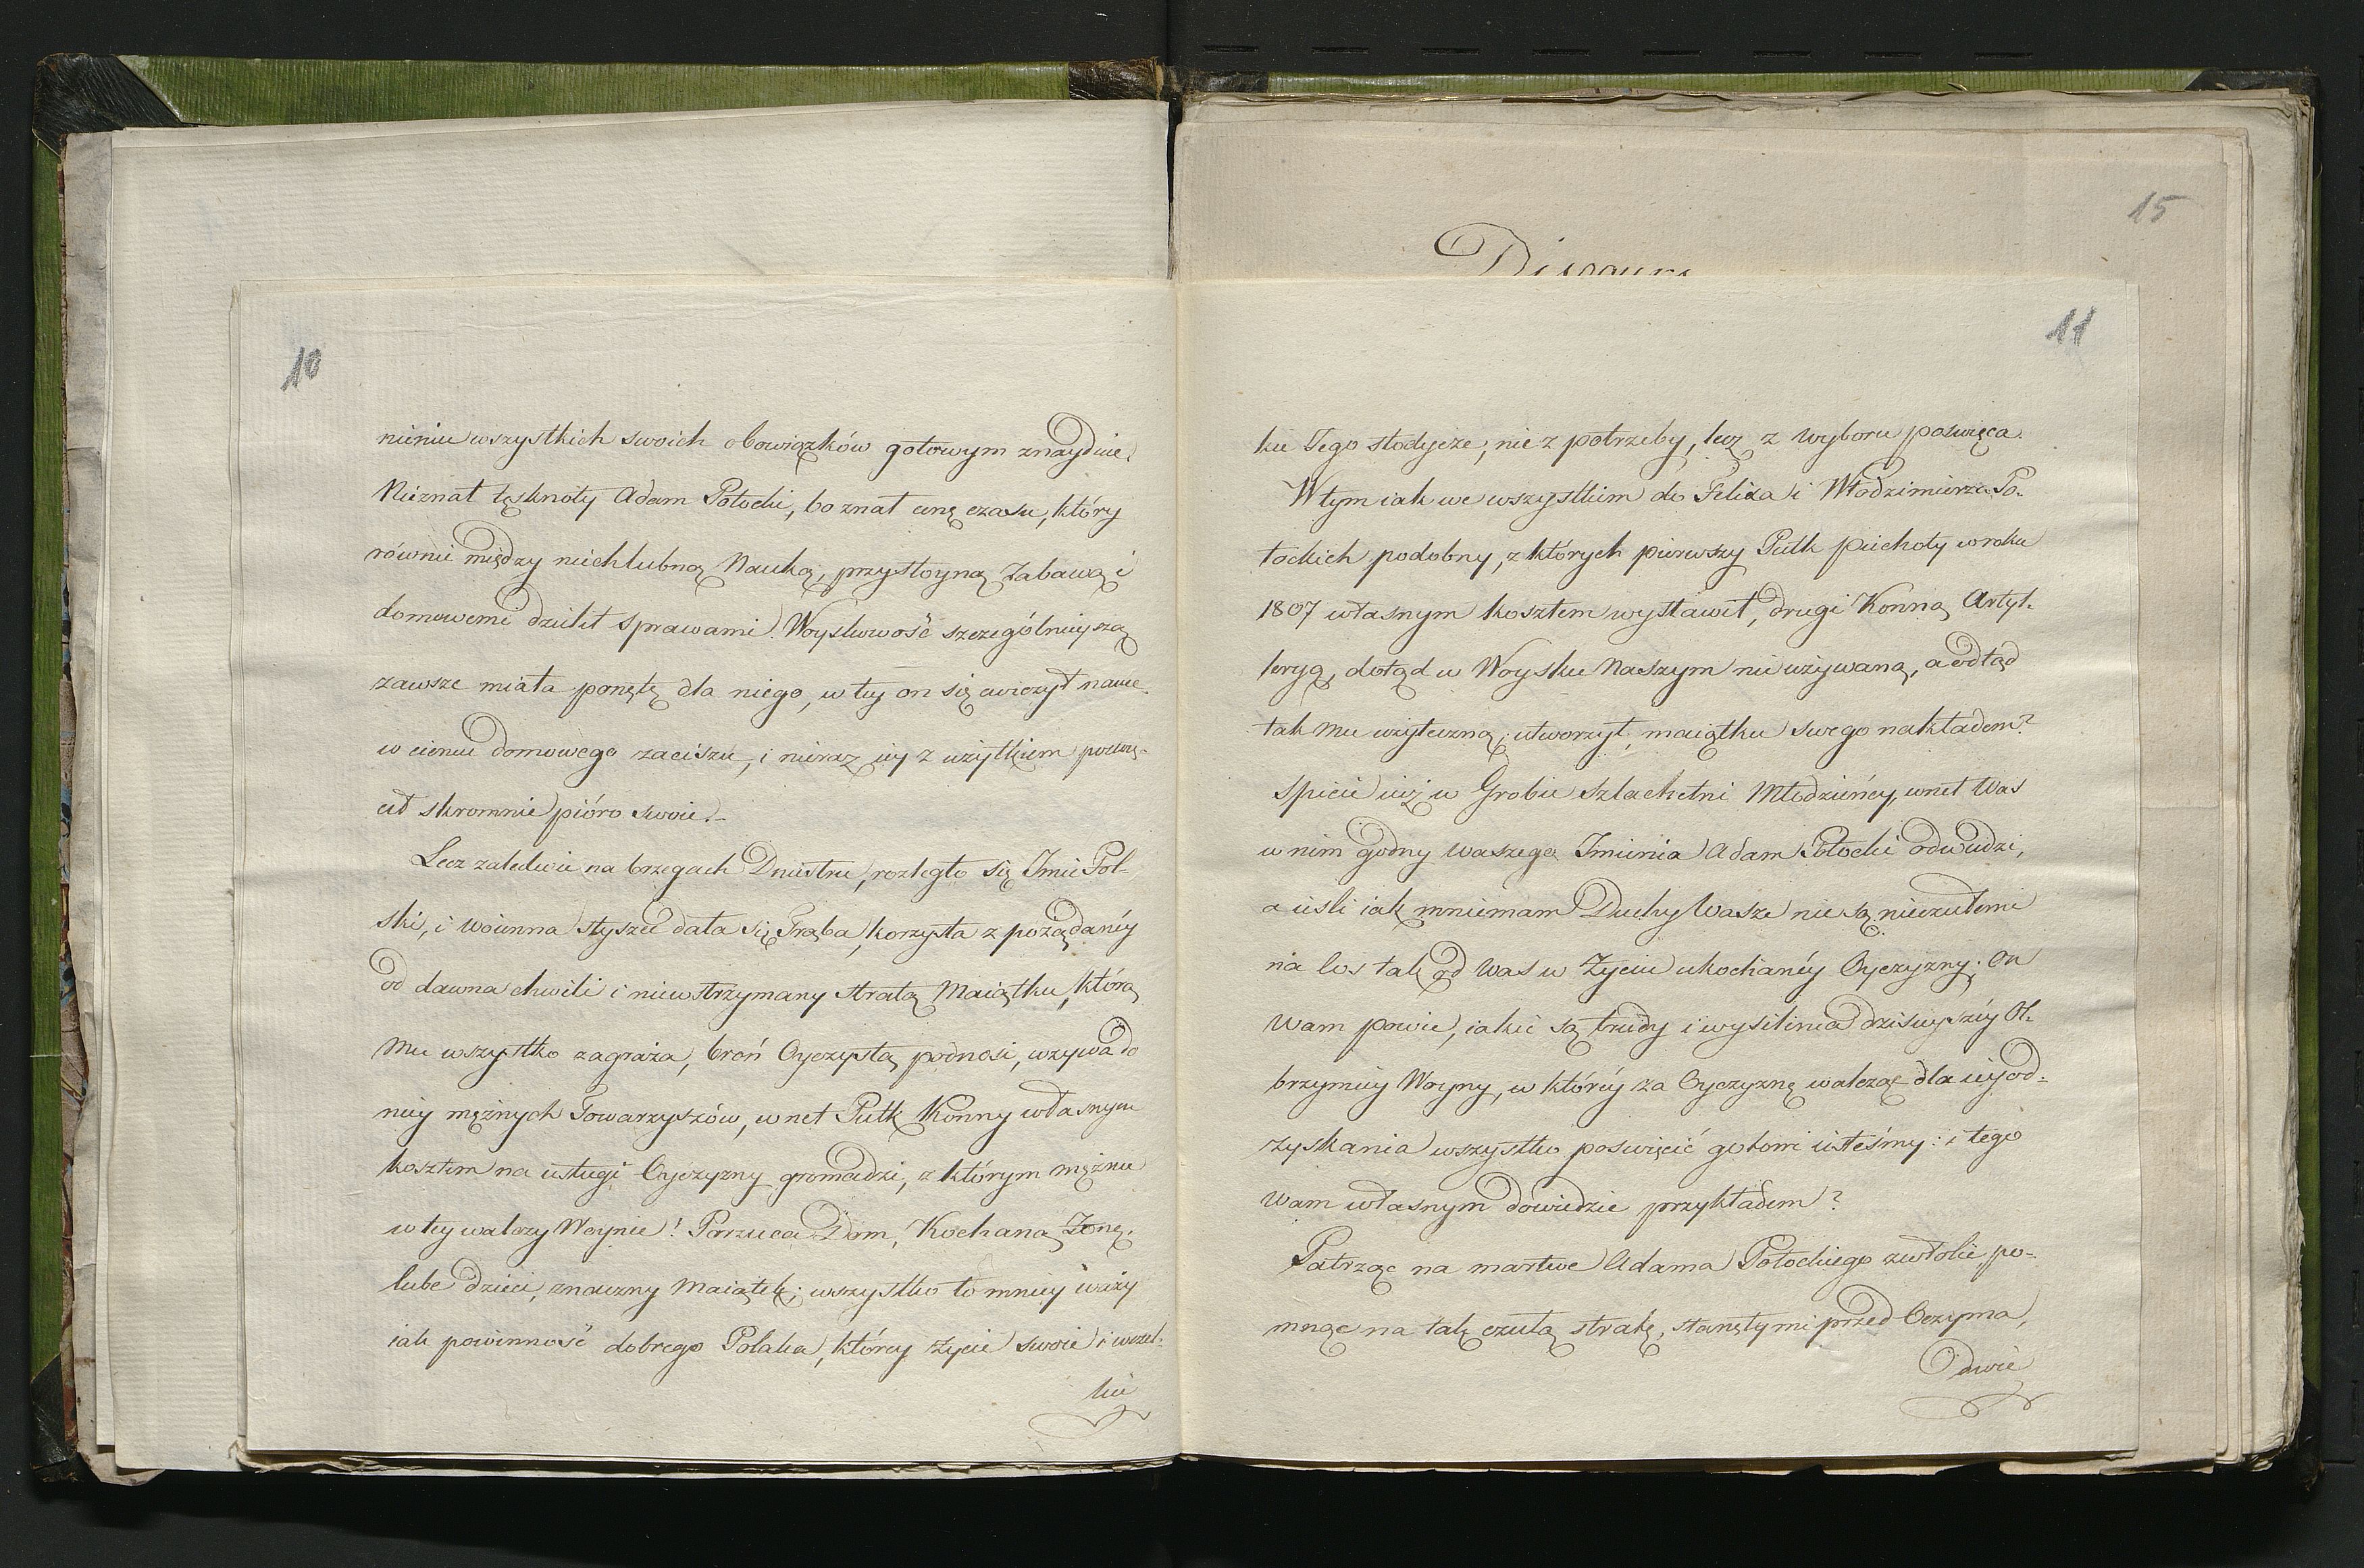 10
nieniu wszystkich swoich obowiązków gotowym znayduie.
Nieznał tęsknoty Adam Potocki, bo znał cenę czasu, który
równie między niechlubną Nauką, przystoyną Zabawą i
domowemi dzielił sprawami. Woyskowość szczególnieyszą
zawsze miała ponętę dla niego, w tey on się cwiczył nauce
w cieniu domowego zaciszu, i nieraz iey z użytkiem poswię-
cił skromnie pióro swoie.-
Lecz zaledwie na brzegach Dniestru, rozległo się Imie Pol-
ski, i woienna słyszeć dała się Trąba, korzysta z pożądanéy
od dawna chwili i niewstrzymany stratą Maiątku, którą
mu wszystko zagraża, broń Oyczystą podnosi, wzywa do
niey mężnych Towarzyszów, wnet Pułk Konny własnym
kosztem na usługi Oyczyzny gromadzi, z którym mężnie
w tey walczy Woynie! Porzuca Dom, Kochaną Żonę,
lube dzieci, znaczny Maiątek; wszystko to mniey waży
iak powinność dobrego Polaka, którey życie swoie i wszel-
kie
15
Discours
11
kie Jego słodycze, nie z potrzeby, lecz z wyboru poswięca.
W tym iak we wszystkim do Felixa i Włodzimierza Po-
tockich podobny, z których pierwszy Pułk piechoty w roku
1807 własnym kosztem wystawił, drugi Konną Artyl-
leryą, dotąd w Woysku Naszym nie używaną, a odtąd
tak mu użyteczną, utworzył, maiątku swego nakładem?
Spicie iuż w Grobie szlachetni Młodzieńcy, wnet Was
w nim godny Waszego Imienia Adam Potocki odwiedzi,
a ieśli iak mniemam Duchy Wasze nie są nieczułemi
na los tak od Was w Życiu ukochanéy Oyczyzny; On
Wam powie, iakie są trudy i wysilenia dzisieyszéy Ol-
brzymiey Woyny, w któréy za Oyczyznę walcząc dla iéy od-
zyskania wszystko poswięcić gotowi iesteśmy: i tego
Wam własnym dowiedzie przykładem?
Patrząc na martwe Adama Potockiego zwłoki, po-
mnąc na tak czułą stratę, stanęły mi przed Oczyma,
Dwie